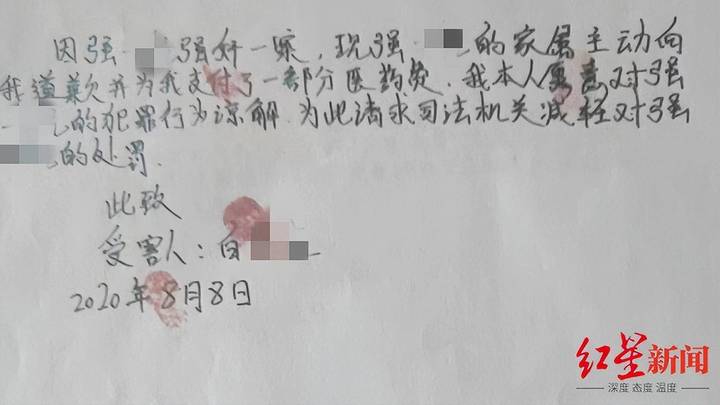 因强 强奸一案，现强 的家属主动向
我道歉并为我支付了一部分医药费，我本人愿意对强
的犯罪行为谅解，为此请求司法机关减轻对强
的处罚.
此致
受害人：白
2020年8月8日
红星新闻
深度 态度 温度